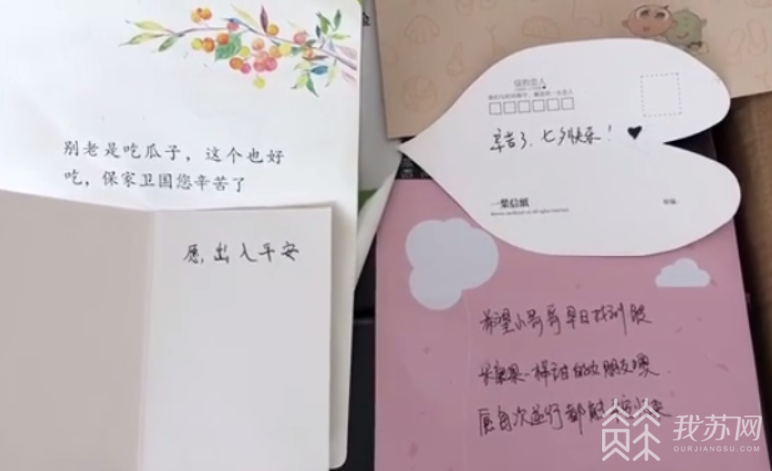 别老是吃瓜子，这个也好
吃，保家卫国您辛苦了
愿，出入平安
辛苦了，七夕快乐！♥
一葉信紙
希望小哥哥早日找到跟
坚果一样甜的女朋友噢
愿每次逆行都能
我苏网
OURJIANGSU.COM